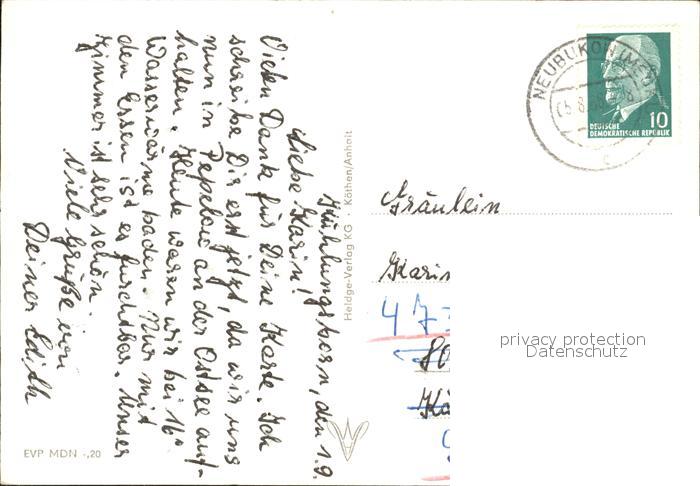 Kühlungsborn, den 1.9.
Liebe Karin!
Vielen Dank für Deine Karte. Ich
schreibe Dir erst jetzt, da wir uns
nun in Pepelow an der Ostsee auf-
halten. Heute waren wir bei 16°
Wasserwärme baden. Nur mit
den Essen ist es furchtbar. Unser
Zimmer ist sehr schön.
Viele Grüße von
Deiner Edith
EVP MDN -,20
Heldge-Verlag KG · Köthen/Anhalt
NEUBUKOW (MECKL)
10
DEUTSCHE
DEMOKRATISCHE REPUBLIK
c
Fräulein
Karin
47
80
Kö
privacy protection
Datenschutz